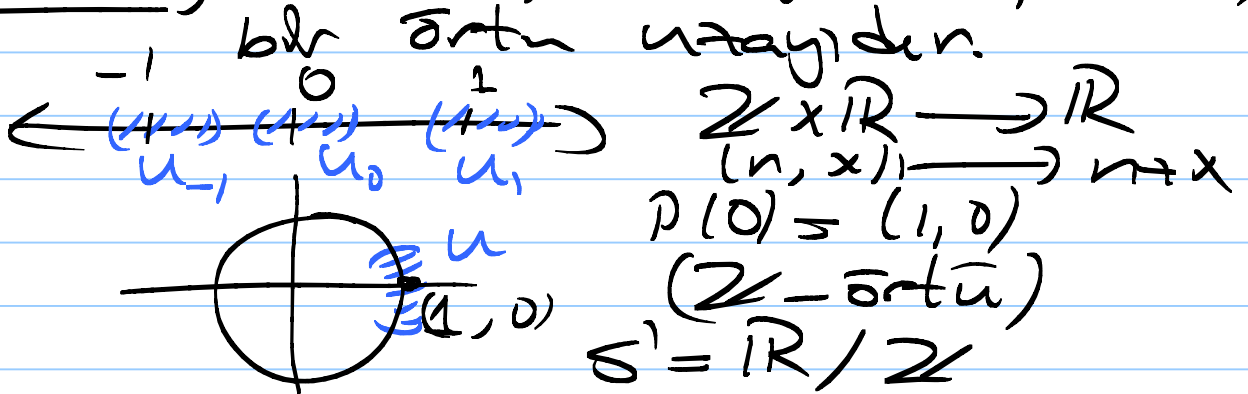 bir örtü uzayıdır.
-1 0 1
U₋₁ U₀ U₁
ℤ x ℝ ⟶ ℝ
(n, x) ⟼ n+x
p(0) = (1, 0)
U
(1, 0)
(ℤ - örtü)
S¹ = ℝ / ℤ